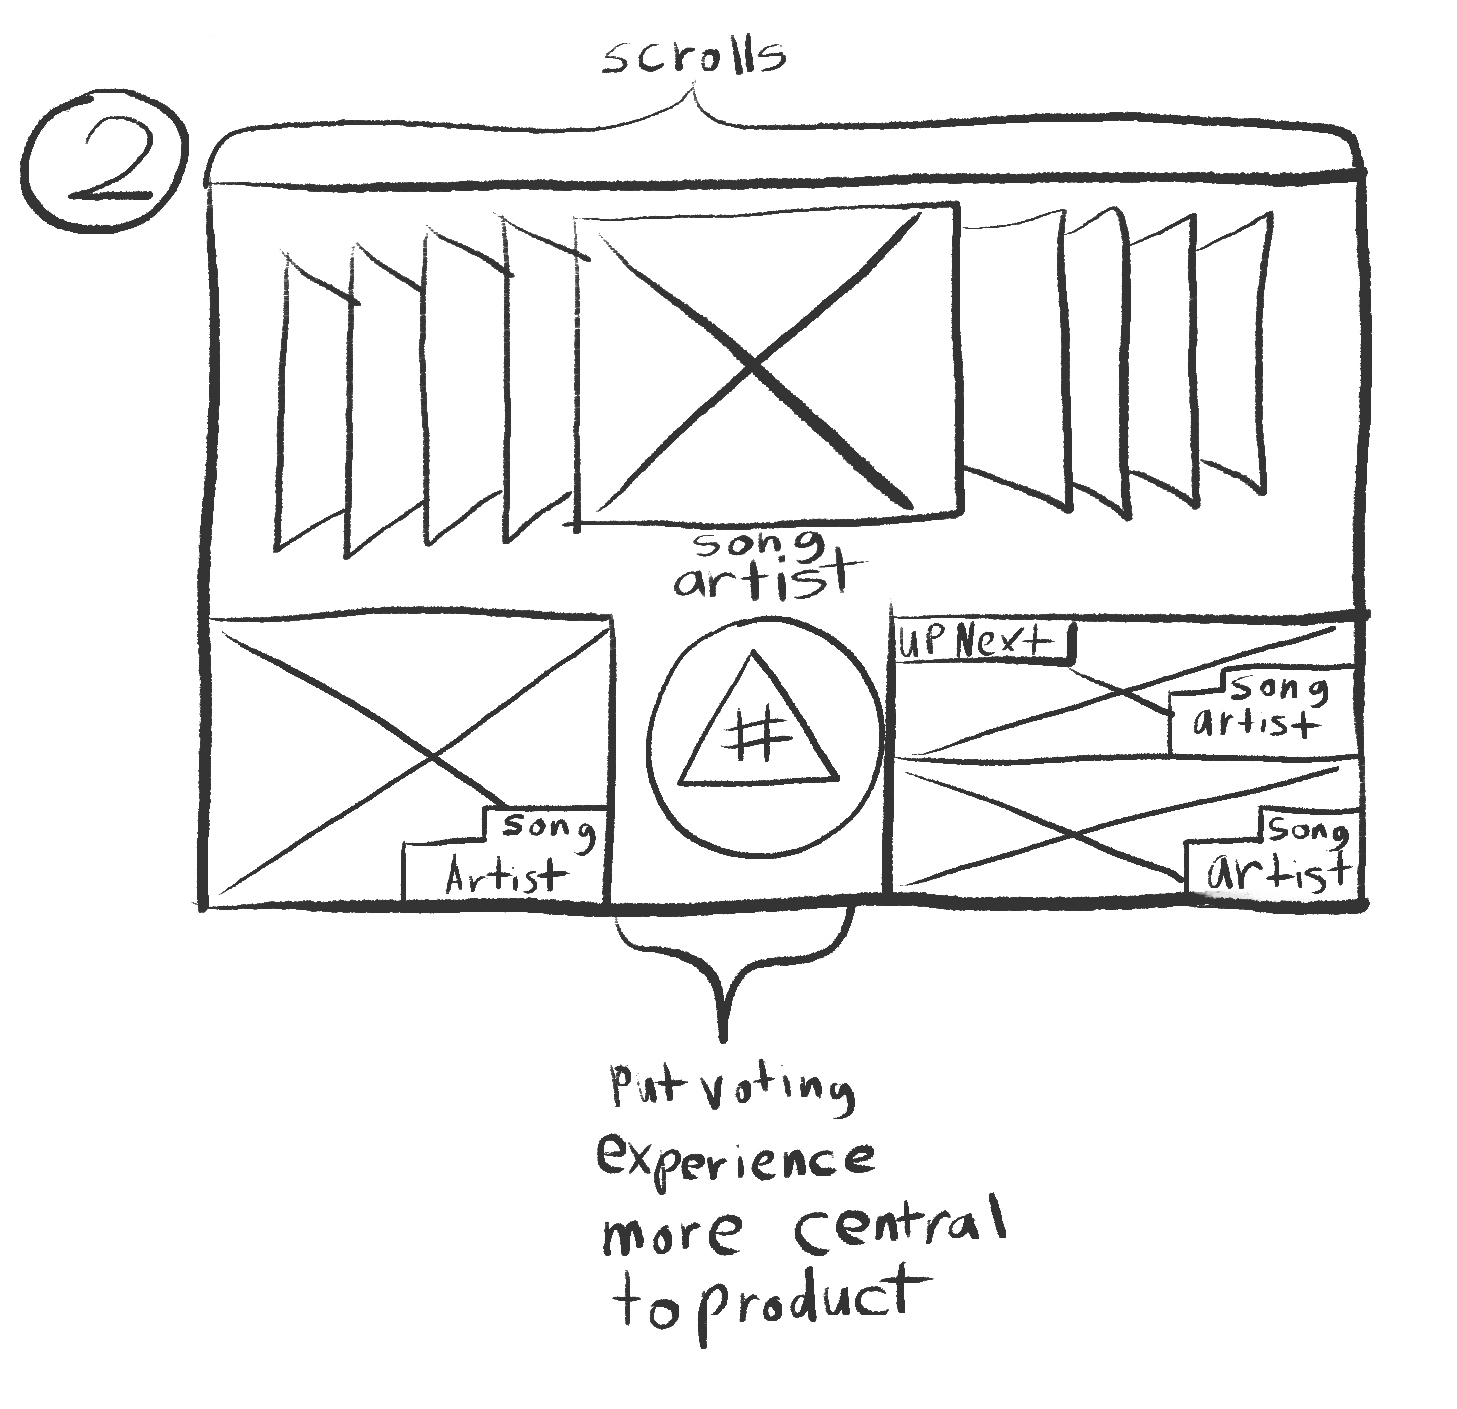 scrolls
2
song
artist
UP Next
song
artist
#
song
Artist
song
artist
Put voting
experience
more central
to product